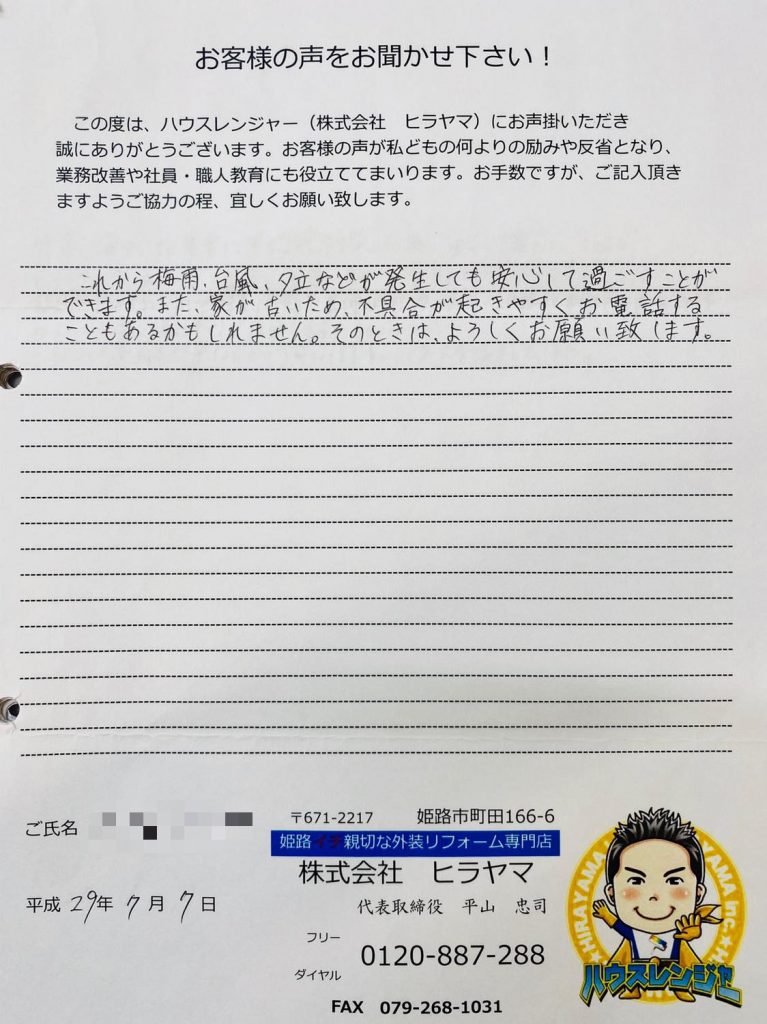 お客様の声をお聞かせ下さい！
この度は、ハウスレンジャー（株式会社　ヒラヤマ）にお声掛いただき
誠にありがとうございます。お客様の声が私どもの何よりの励みや反省となり、
業務改善や社員・職人教育にも役立ててまいります。お手数ですが、ご記入頂き
ますようご協力の程、宜しくお願い致します。
これから梅雨、台風、夕立などが発生しても安心して過ごすことが
できます。また、家が古いため、不具合が起きやすくお電話する
こともあるかもしれません。そのときは、よろしくお願い致します。
ご氏名
〒671-2217　姫路市町田166-6
姫路イチ親切な外装リフォーム専門店
株式会社　ヒラヤマ
代表取締役　平山　忠司
平成29年7月7日
フリー
ダイヤル
0120-887-288
FAX　079-268-1031
HIRAYAMA Inc.
ハウスレンジャー